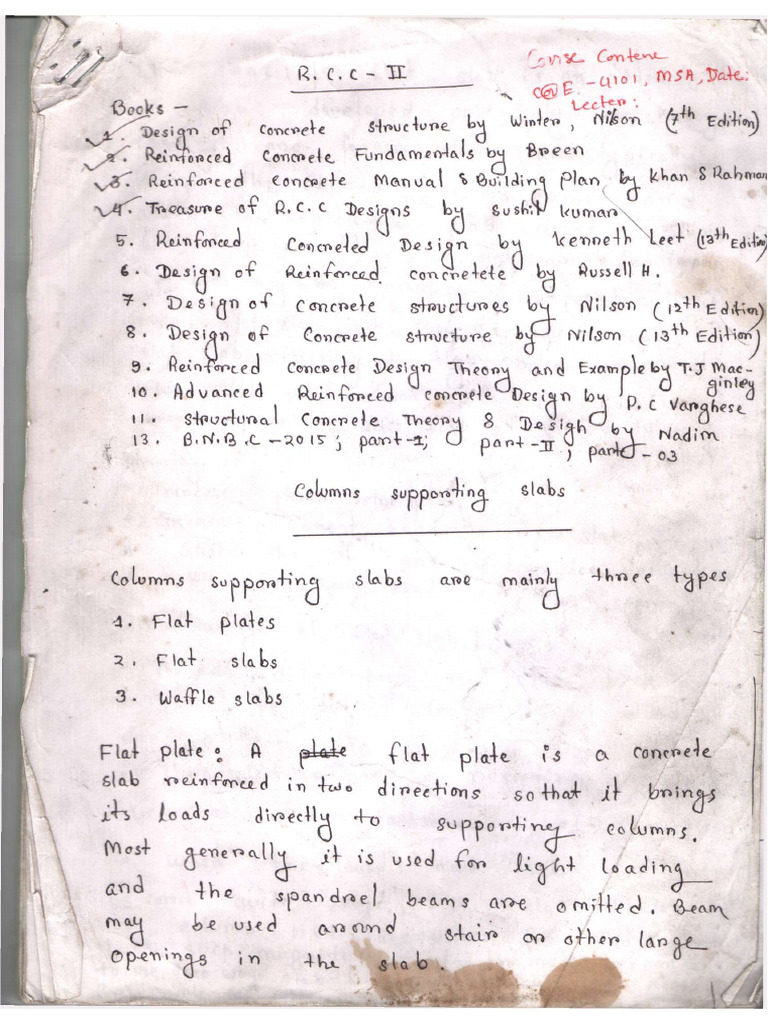 R.C.C - II
Course Contene
C@E - 4101, MSA, Date:
Lecter:
Books -
1. Design of concrete structure by Winter, Nilson (7th Edition)
2. Reinforced Concrete Fundamentals by Breen
3. Reinforced concrete Manual & Building Plan by Khan & Rahman
4. Treasure of R.C.C Designs by Sushil Kumar
5. Reinforced Concreted Design by Kenneth Leet (13th Edition)
6. Design of Reinforced concretete by Russell H.
7. Design of concrete structures by Nilson (12th Edition)
8. Design of Concrete structure by Nilson (13th Edition)
9. Reinforced Concrete Design Theory and Example by T.J Mac-
ginley
10. Advanced Reinforced concrete Design by P.C Varghese
11. Structural Concrete Theory & Design by Nadim
13. B.N.B.C - 2015; part-1; part-II, part-03
Columns supporting slabs
Columns supporting slabs are mainly three types
1. Flat plates
2. Flat slabs
3. Waffle slabs
Flat plate: A plate flat plate is a concrete
slab reinforced in two directions so that it brings
its loads directly to supporting columns.
Most generally it is used for light loading
and the spandrel beams are omitted. Beam
may be used around stair or other large
openings in the slab.